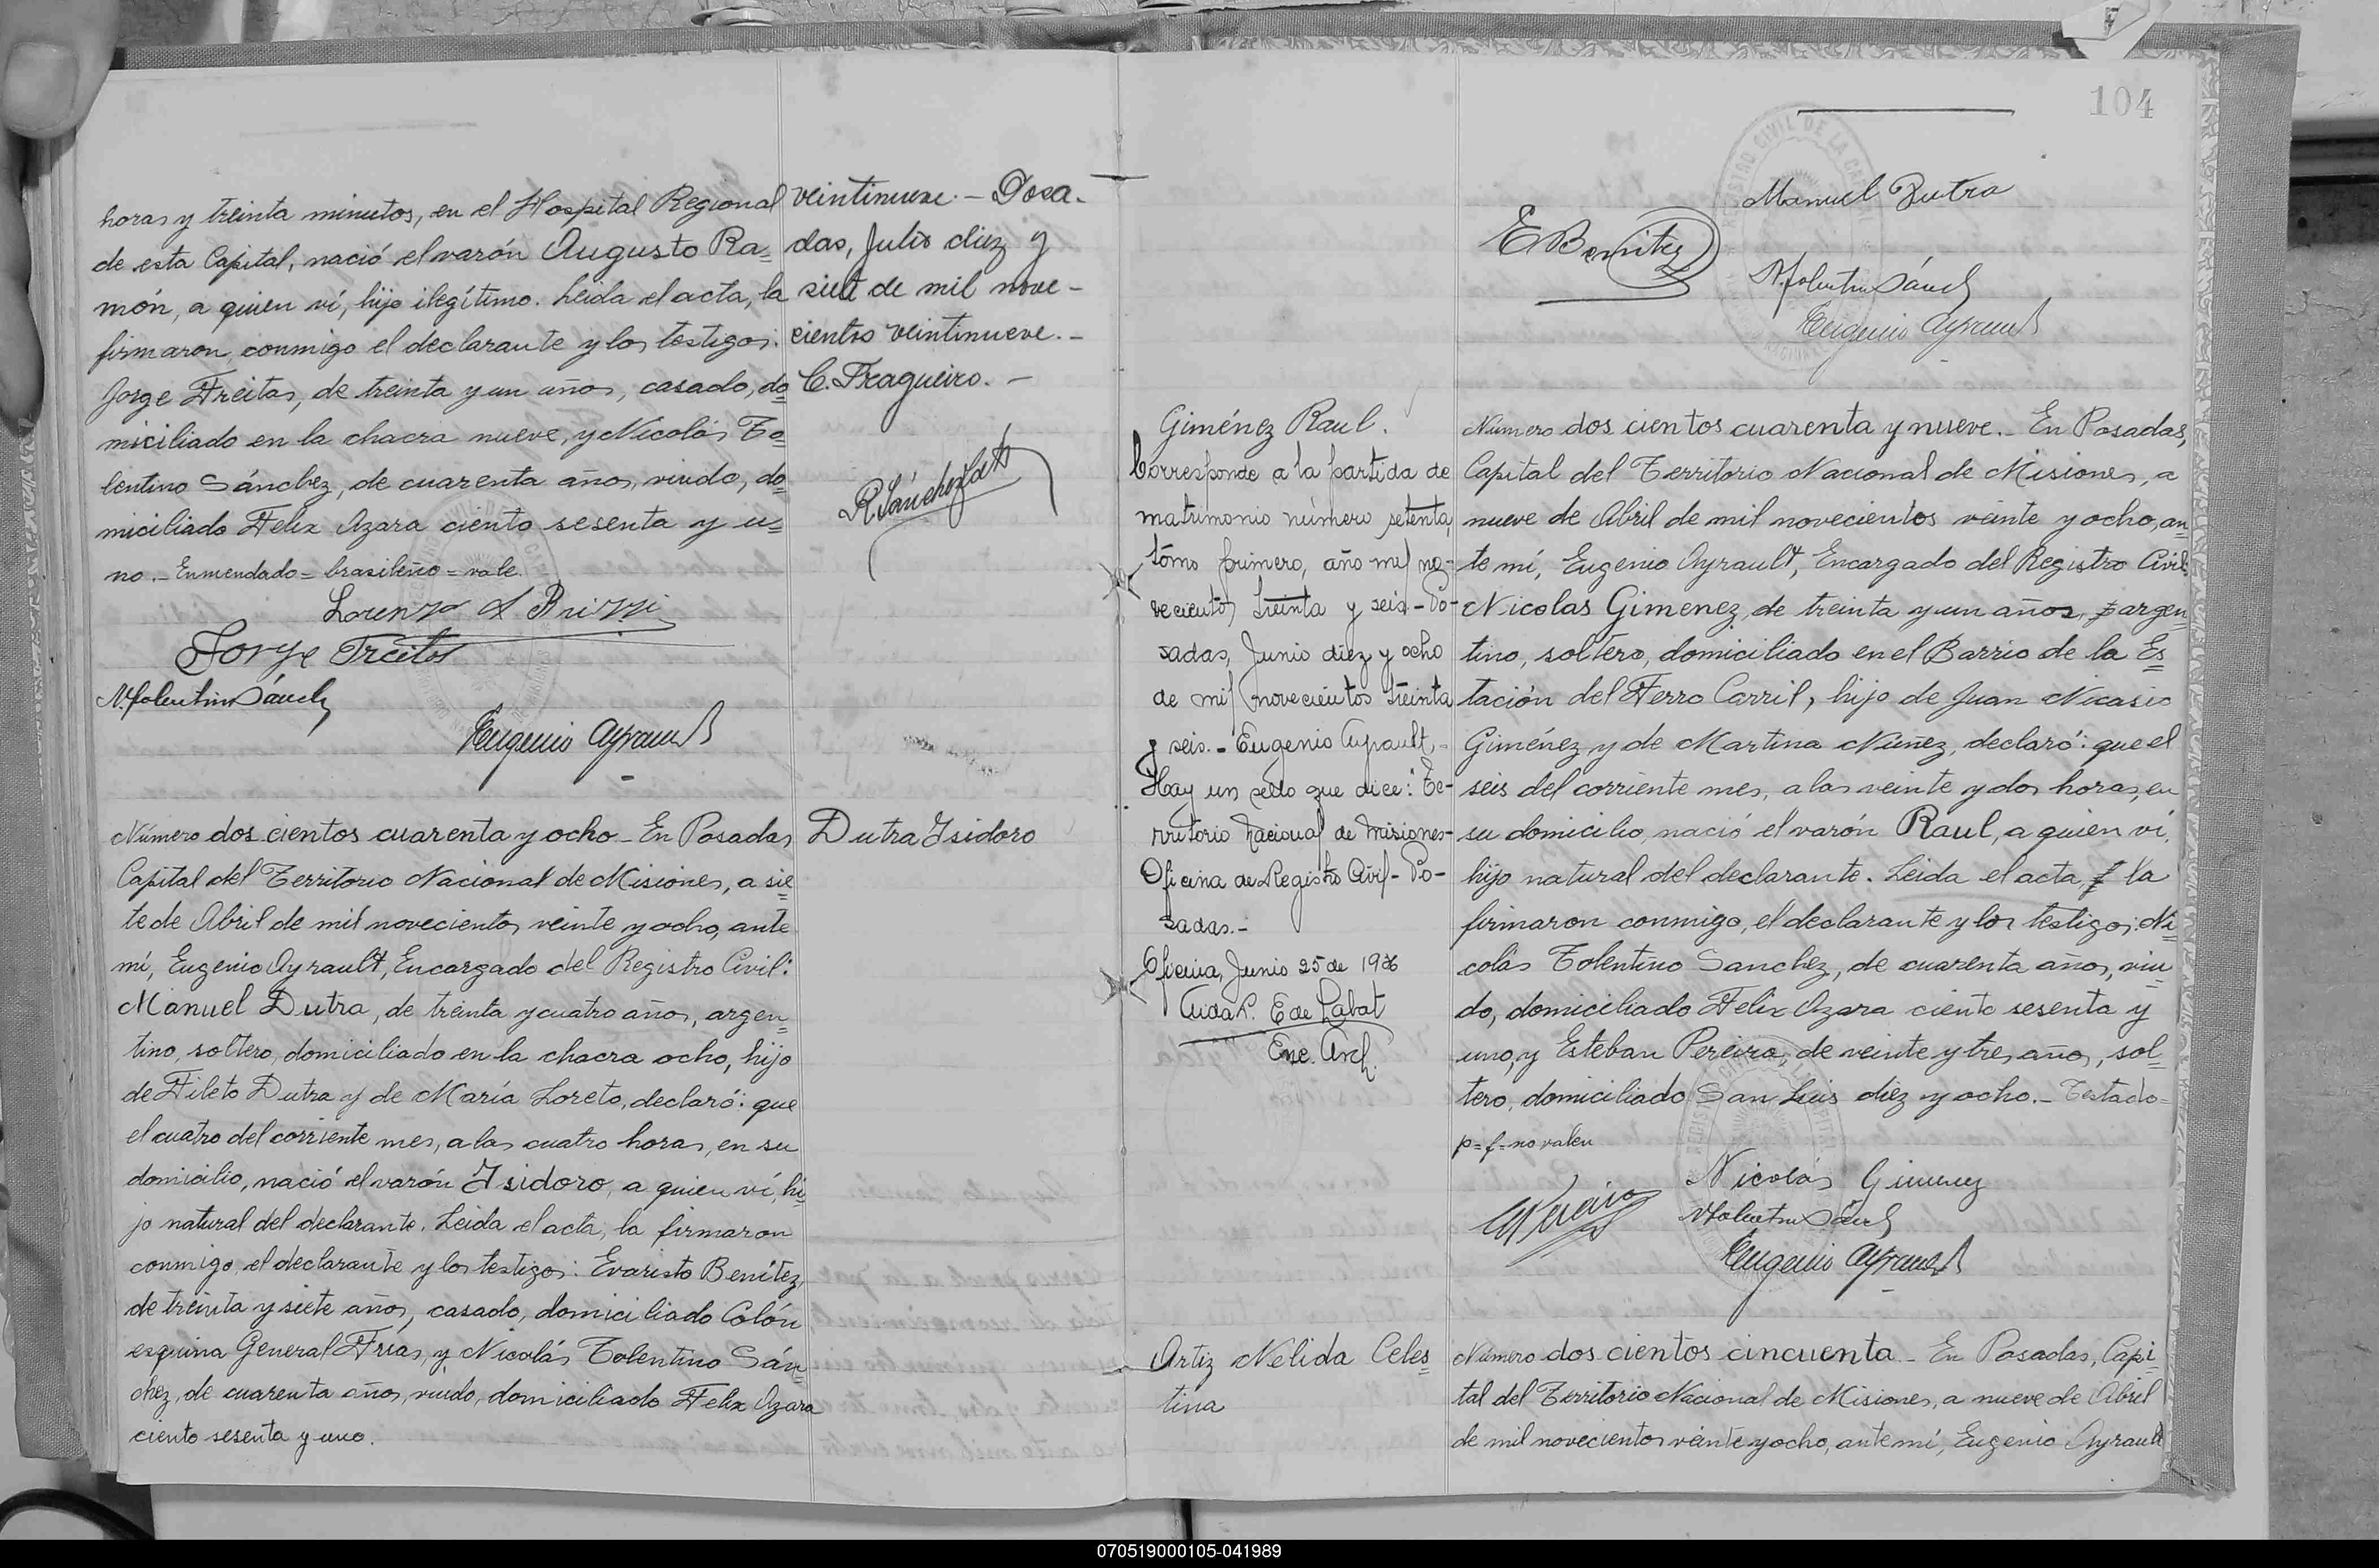 horas y treinta minutos, en el Hospital Regional
de esta Capital, nació el varón Augusto Ra=
món, a quien ví, hijo ilegítimo. Leida el acta, la
firmaron conmigo el declarante y los testigos:
Jorge Freitas, de treinta y un años, casado, do=
miciliado en la chacra nueve, y Nicolás To=
lentino Sánchez, de cuarenta años, viudo, do=
miciliado Felix Azara ciento sesenta y u=
no.- Enmendado = brasileño = vale.
Jorge Freitas
N. Tolentino Sánch
Eugenio Ayrault
veintinueve.- Posa-
das, Julio diez y
siete de mil nove-
cientos veintinueve.-
C. Fragueiro.-
Número dos cientos cuarenta y ocho - En Posadas
Capital del Territorio Nacional de Misiones, a sie=
te de Abril de mil novecientos veinte y ocho, ante
mí, Eugenio Ayrault, Encargado del Registro Civil:
Manuel Dutra, de treinta y cuatro años, argen=
tino, soltero, domiciliado en la chacra ocho, hijo
de Fileto Dutra y de María Loreto, declaró: que
el cuatro del corriente mes, a las cuatro horas, en su
domicilio, nació el varón Isidoro, a quien ví, hi=
jo natural del declarante. Leida el acta, la firmaron
conmigo, el declarante y los testigos: Evaristo Benítez,
de treinta y siete años, casado, domiciliado Colón
esquina General Frías, y Nicolás Tolentino Sán=
chez, de cuarenta años, viudo, domiciliado Felix Azara
ciento sesenta y uno.
Dutra Isidoro
104
Manuel Dutra
E Benitez
N. Tolentino Sánch
Eugenio Ayrault
Giménez Raul.
Corresponde a la partida de
matrimonio número setenta,
tomo primero, año mil no-
vecientos treinta y seis - Po-
sadas, Junio diez y ocho
de mil novecientos treinta
y seis.- Eugenio Ayrault.-
Hay un sello que dice: Te-
rritorio Nacional de Misiones-
Oficina de Registro Civil - Po-
sadas.-
Oficina, Junio 25 de 1936
Enc. Arch.
Número dos cientos cuarenta y nueve.- En Posadas,
Capital del Territorio Nacional de Misiones, a
nueve de Abril de mil novecientos veinte y ocho, an
te mí, Eugenio Ayrault, Encargado del Registro Civil
Nicolas Gimenez, de treinta y un años, p argen=
tino, soltero, domiciliado en el Barrio de la Es=
tación del Ferro Carril, hijo de Juan Nicasio
Giménez y de Martina Núñez, declaró: que el
seis del corriente mes, a las veinte y dos horas, en
su domicilio, nació el varón Raul, a quien ví,
hijo natural del declarante. Leida el acta, f la
firmaron conmigo, el declarante y los testigos: Ni=
colás Tolentino Sanchez, de cuarenta años, viu=
do, domiciliado Felix Azara ciento sesenta y
uno, y Esteban Pereira, de veinte y tres años, sol=
tero, domiciliado San Luis diez y ocho.- Testado=
p = f = no valen
Nicolás Gimenez
N Tolentino Sánch
Eugenio Ayrault
Artiz Nelida Celes=
tina
Número dos cientos cincuenta.- En Posadas, Capi=
tal del Territorio Nacional de Misiones, a nueve de Abril
de mil novecientos veinte y ocho, ante mí, Eugenio Ayrault
070519000105-041989